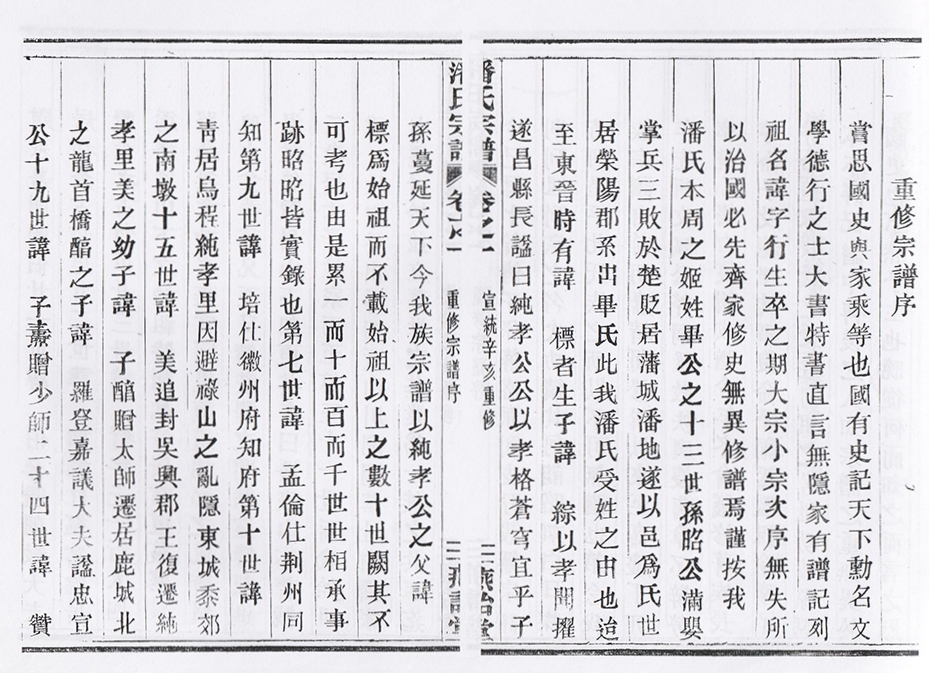 重修宗譜序
嘗思國史與家乘等也國有史記天下勳名文
學德行之士大書特書直言無隱家有譜記列
祖名諱字行生卒之期大宗小宗次序無失所
以治國必先齊家修史無異修譜焉謹按我
潘氏本周之姬姓畢公之十三世孫昭公滿娶
掌兵三敗於楚貶居藩城潘地遂以邑爲氏世
居榮陽郡系出畢氏此我潘氏受姓之由也迨
至東晉時有諱 標者生子諱 綜以孝聞擢
遂昌縣長諡曰純孝公公以孝格蒼穹宜乎子
潘氏宗譜 卷之一 宣統辛亥重修 二
潘氏宗譜 卷之一 重修宗譜序 二
孫蔓延天下今我族宗譜以純孝公之父諱
標爲始祖而不載始祖以上之數十世闕其不
可考也由是累一而十而百而千世世相承事
跡昭昭皆實錄也第七世諱 孟倫仕荆州同
知第九世諱 培仕徽州府知府第十世諱
靑居烏程純孝里因避祿山之亂隱東城黍郊
之南墩十五世諱 美追封吳興郡王復遷純
孝里美之幼子諱 子䤃贈太師遷居鹿城北
之龍首橋䤃之子諱 羅登嘉議大夫諡忠宣
公十九世諱 子燾贈少師二十四世諱 鑽